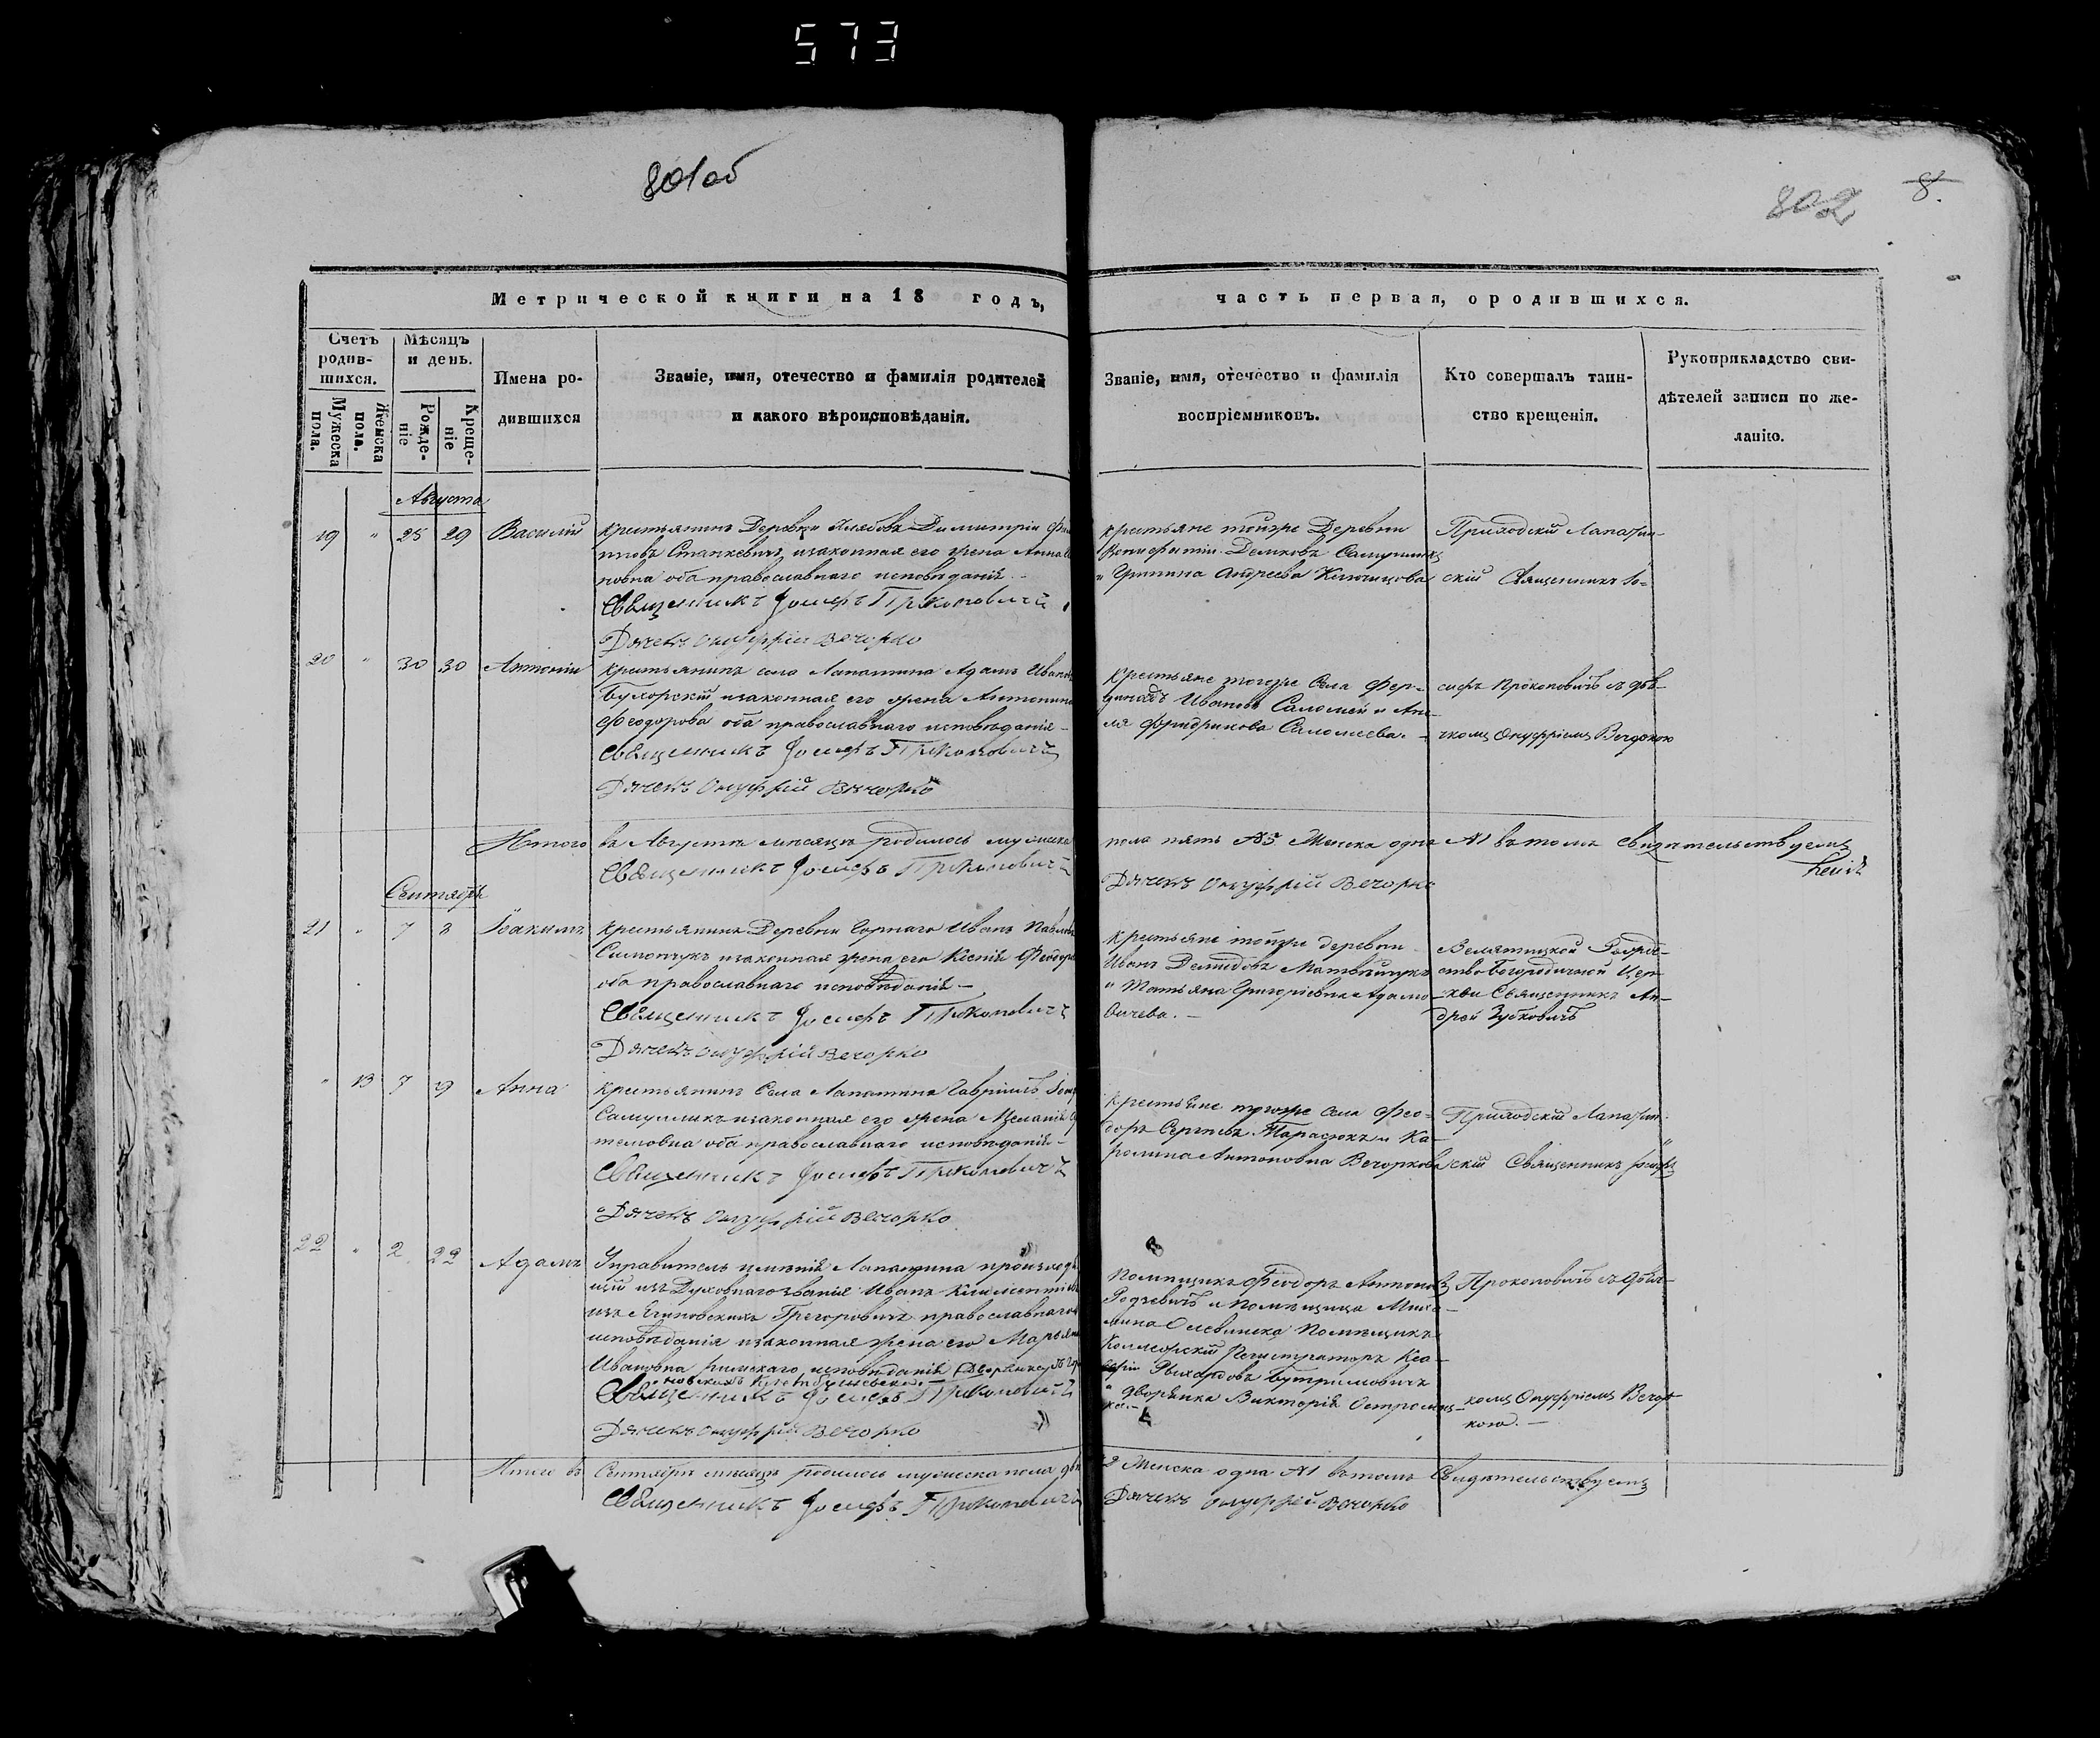 573
801об
802 8.
Метрической книги на 18 годъ,
часть первая, ородившихся.
Счетъ родив-шихся.
Мѣсяцъ и день.
Имена ро-
дившихся
Званіе, имя, отечество и фамилія родителей
и какого вѣроисповѣданія.
Званіе, имя, отечество и фамилія
воспріемниковъ.
Кто совершалъ таин-
ство крещенія.
Рукоприкладство сви-
дѣтелей записи по же-
ланію.
Мужеска пола.
Женска пола.
Рожде-ніе
Креще-ніе
Августа
19 " 25 29 Василій
Крестьянинъ Деревни Димитрій
Станкевичъ изаконная его жена Анна
оба православнаго исповѣданія. -
Священникъ Іосифъ Прокоповичъ
Дячекъ Онуфрій Вечорко
Крестьяне тойже Деревни
Демковъ
и Андреева
Приходскій Лапатин-
скій Священникъ Іо-
20 " 30 30 Антоній
Крестьянинъ села Лапатина Адамъ Иванов
Бухорскій изаконная его жена Антонина
Феодорова оба православнаго исповѣданія -
Священникъ Іосифъ Прокоповичъ
Дячекъ Онуфрій Вечорко
Крестьяне тогоже Села Фер-
динадъ Ивановъ Саломей и Ане-
ля Фридрикова Саломеева. -
сифъ Прокоповичъ съ дья-
чкомъ Онуфріемъ Вечоркою
Итого въ Августѣ мѣсяцѣ родилось мужеска
пола пять №5 Женска одна №1 въ томъ свидѣтельствуемъ
Священникъ Іосифъ Прокоповичъ
Дячекъ Онуфрій Вечорко
Сентябрь
21 " 7 8 Іоакимъ
Крестьянинъ Деревни Горнаго Иванъ Павлов
Симончукъ изаконная жена его Ксенія Феодоро
оба православнаго исповѣданія -
Священникъ Іосифъ Прокоповичъ
Дячекъ Онуфрій Вечорко
Крестьяне тойже деревни
Иванъ Демидовъ Матвѣйчукъ
и Татьяна Григоріевна Адамо-
вичева. -
Велятицкой Рожде-
ствобогородичной Цер-
кви Священникъ Ан-
дрей Зубковичъ
" 13 7 9 Анна
Крестьянинъ Села Лапатина Гавріилъ
Самуиликъ изаконная его жена Меланія
темовна оба православнаго исповѣданія -
Священникъ Іосифъ Прокоповичъ
Дячекъ Онуфрій Вечорко
Крестьяне тогоже села Фео-
доръ Сергѣевъ Тарасюкъ и Ка-
ролина Антоновна Вечоркова
Приходскій Лапатин-
скій Священникъ Іосифъ
22 " 2 22 Адамъ
Управитель имѣнія Лапатина происходя
щій изъ Духовнаго званія Иванъ Климентіевъ
изъ Ягиновскихъ Грегоровичъ православнаго
исповѣданія изаконная жена его Марьяна
Ивановна римскаго исповѣданія
Священникъ Іосифъ Прокоповичъ
Дячекъ Онуфрій Вечорко
Помѣщикъ Феодоръ Антоновъ
Родзевичъ и помѣщица Миха-
лина Олевинска Помѣщикъ
Коллежскій Регистраторъ
Бутримовичъ
и дворянка Викторія Островец-
ка. -
Прокоповичъ съ дьяч-
комъ Онуфріемъ Вечор-
кою. -
Итого въ Сентябрѣ мѣсяцѣ родилось мужеска пола два
2 Женска одна №1 въ томъ Свидѣтельствуемъ
Священникъ Іосифъ Прокоповичъ
Дячекъ Онуфрій Вечорко